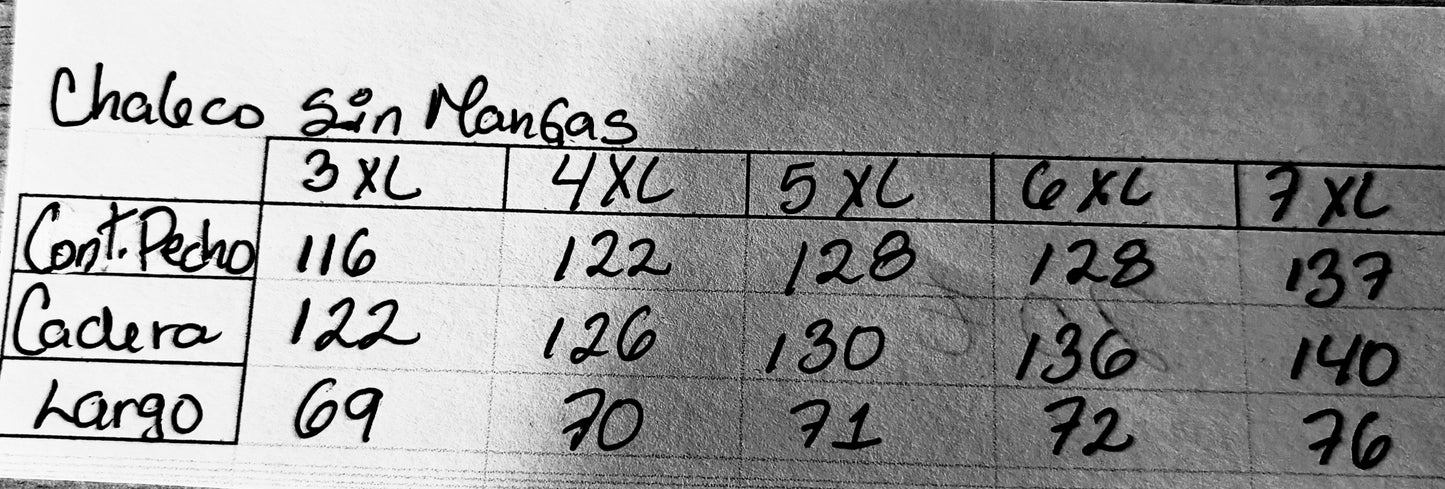 Chaleco Sin Mangas
3XL 4XL 5XL 6XL 7XL
Cont.Pecho 116 122 128 128 137
Cadera 122 126 130 136 140
Largo 69 70 71 72 76